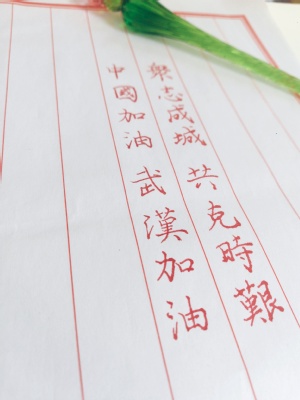 眾志成城 共克時艱
中國加油 武漢加油